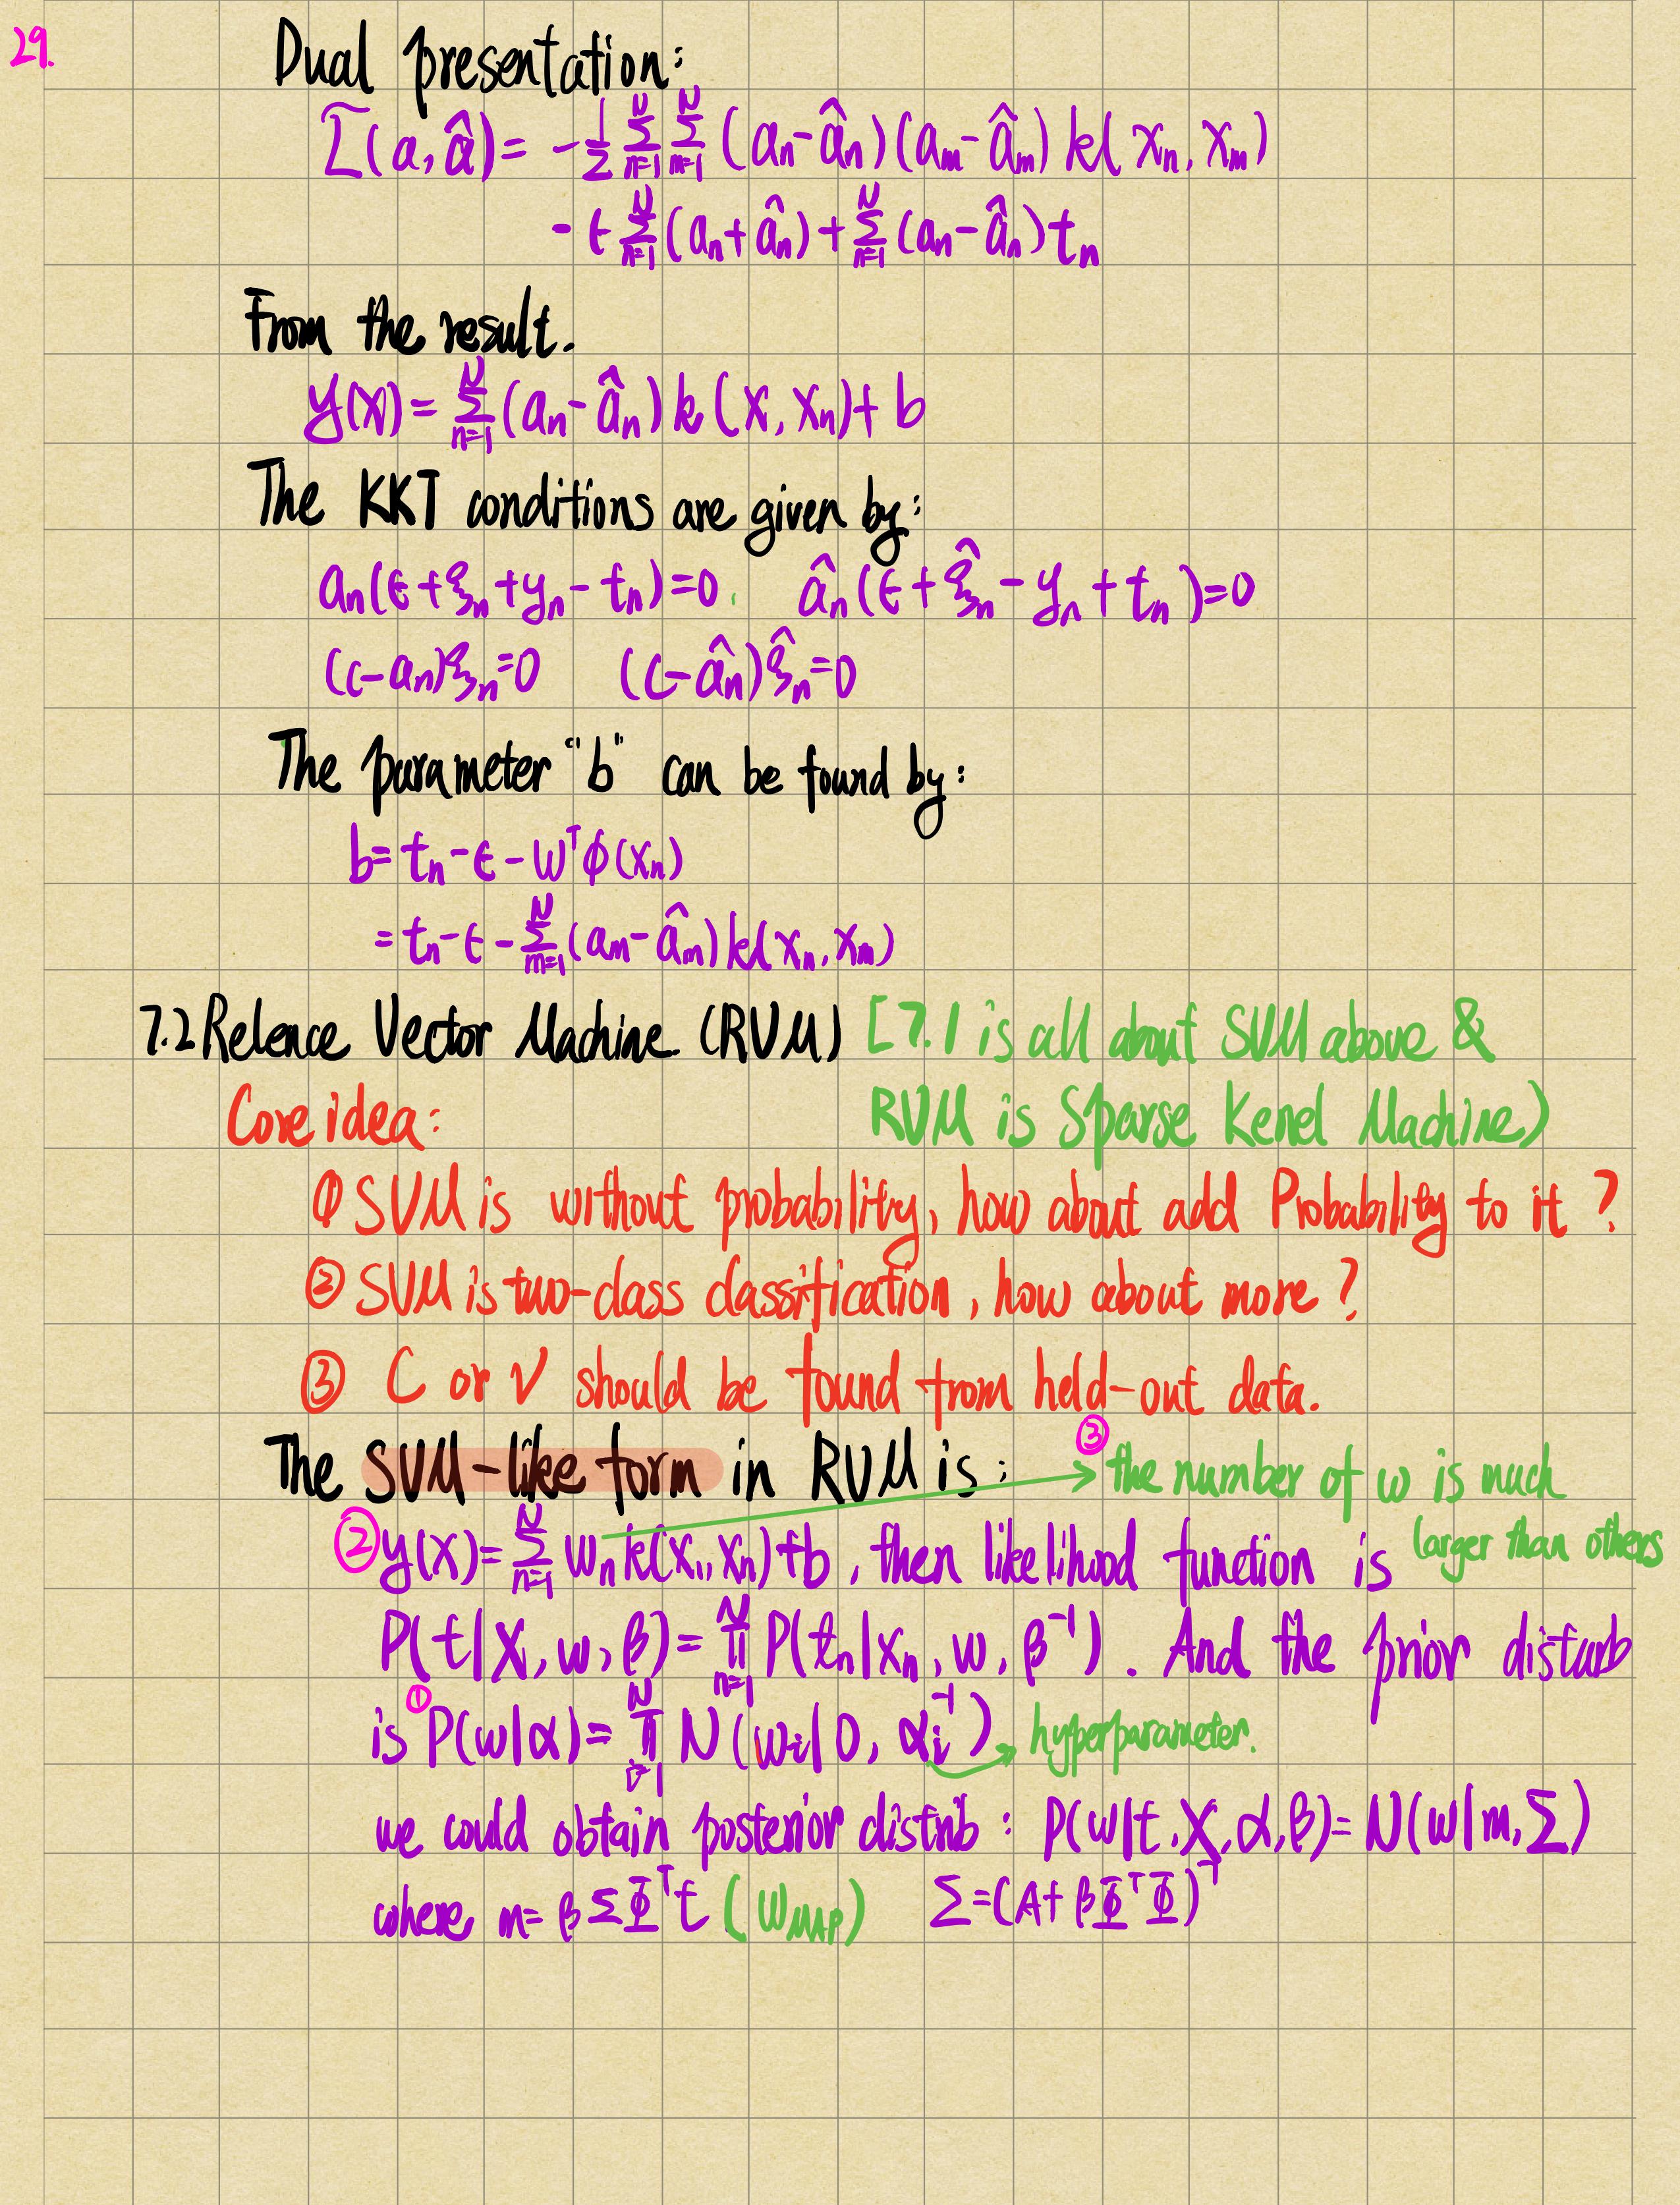 29.
Dual presentation:
L̃(a, â) = -1/2 Σ_{n=1}^{N} Σ_{m=1}^{N} (a_n - â_n)(a_m - â_m) k(x_n, x_m)
- ϵ Σ_{n=1}^{N} (a_n + â_n) + Σ_{n=1}^{N} (a_n - â_n) t_n
From the result.
y(x) = Σ_{n=1}^{N} (a_n - â_n) k(x, x_n) + b
The KKT conditions are given by:
a_n(ϵ + ξ_n + y_n - t_n) = 0. â_n(ϵ + ξ̂_n - y_n + t_n) = 0
(C - a_n)ξ_n = 0 (C - â_n)ξ̂_n = 0
The parameter "b" can be found by:
b = t_n - ϵ - w^T ϕ(x_n)
= t_n - ϵ - Σ_{m=1}^{N} (a_m - â_m) k(x_n, x_m)
7.2 Relence Vector Machine (RVM) [7.1 is all about SVM above &
RVM is Sparse Kenel Machine)
Core idea:
① SVM is without probability, how about add Probability to it ?
② SVM is two-class classification, how about more ?
③ C or ν should be found from held-out data.
The SVM-like form in RVM is:
③ the number of w is much
larger than others
② y(x) = Σ_{n=1}^{N} w_n k(x, x_n) + b, then likelihood function is
P(t|X, w, β) = Π_{n=1}^{N} P(t_n|x_n, w, β^{-1}). And the prior disturb
is ① P(w|α) = Π_{i=1}^{N} N(w_i|0, α_i^{-1}) hyperparameter.
we could obtain posterior distrib: P(w|t, X, α, β) = N(w|m, Σ)
where m = βΣΦ^T t (w_MAP) Σ = (A + βΦ^TΦ)^{-1}